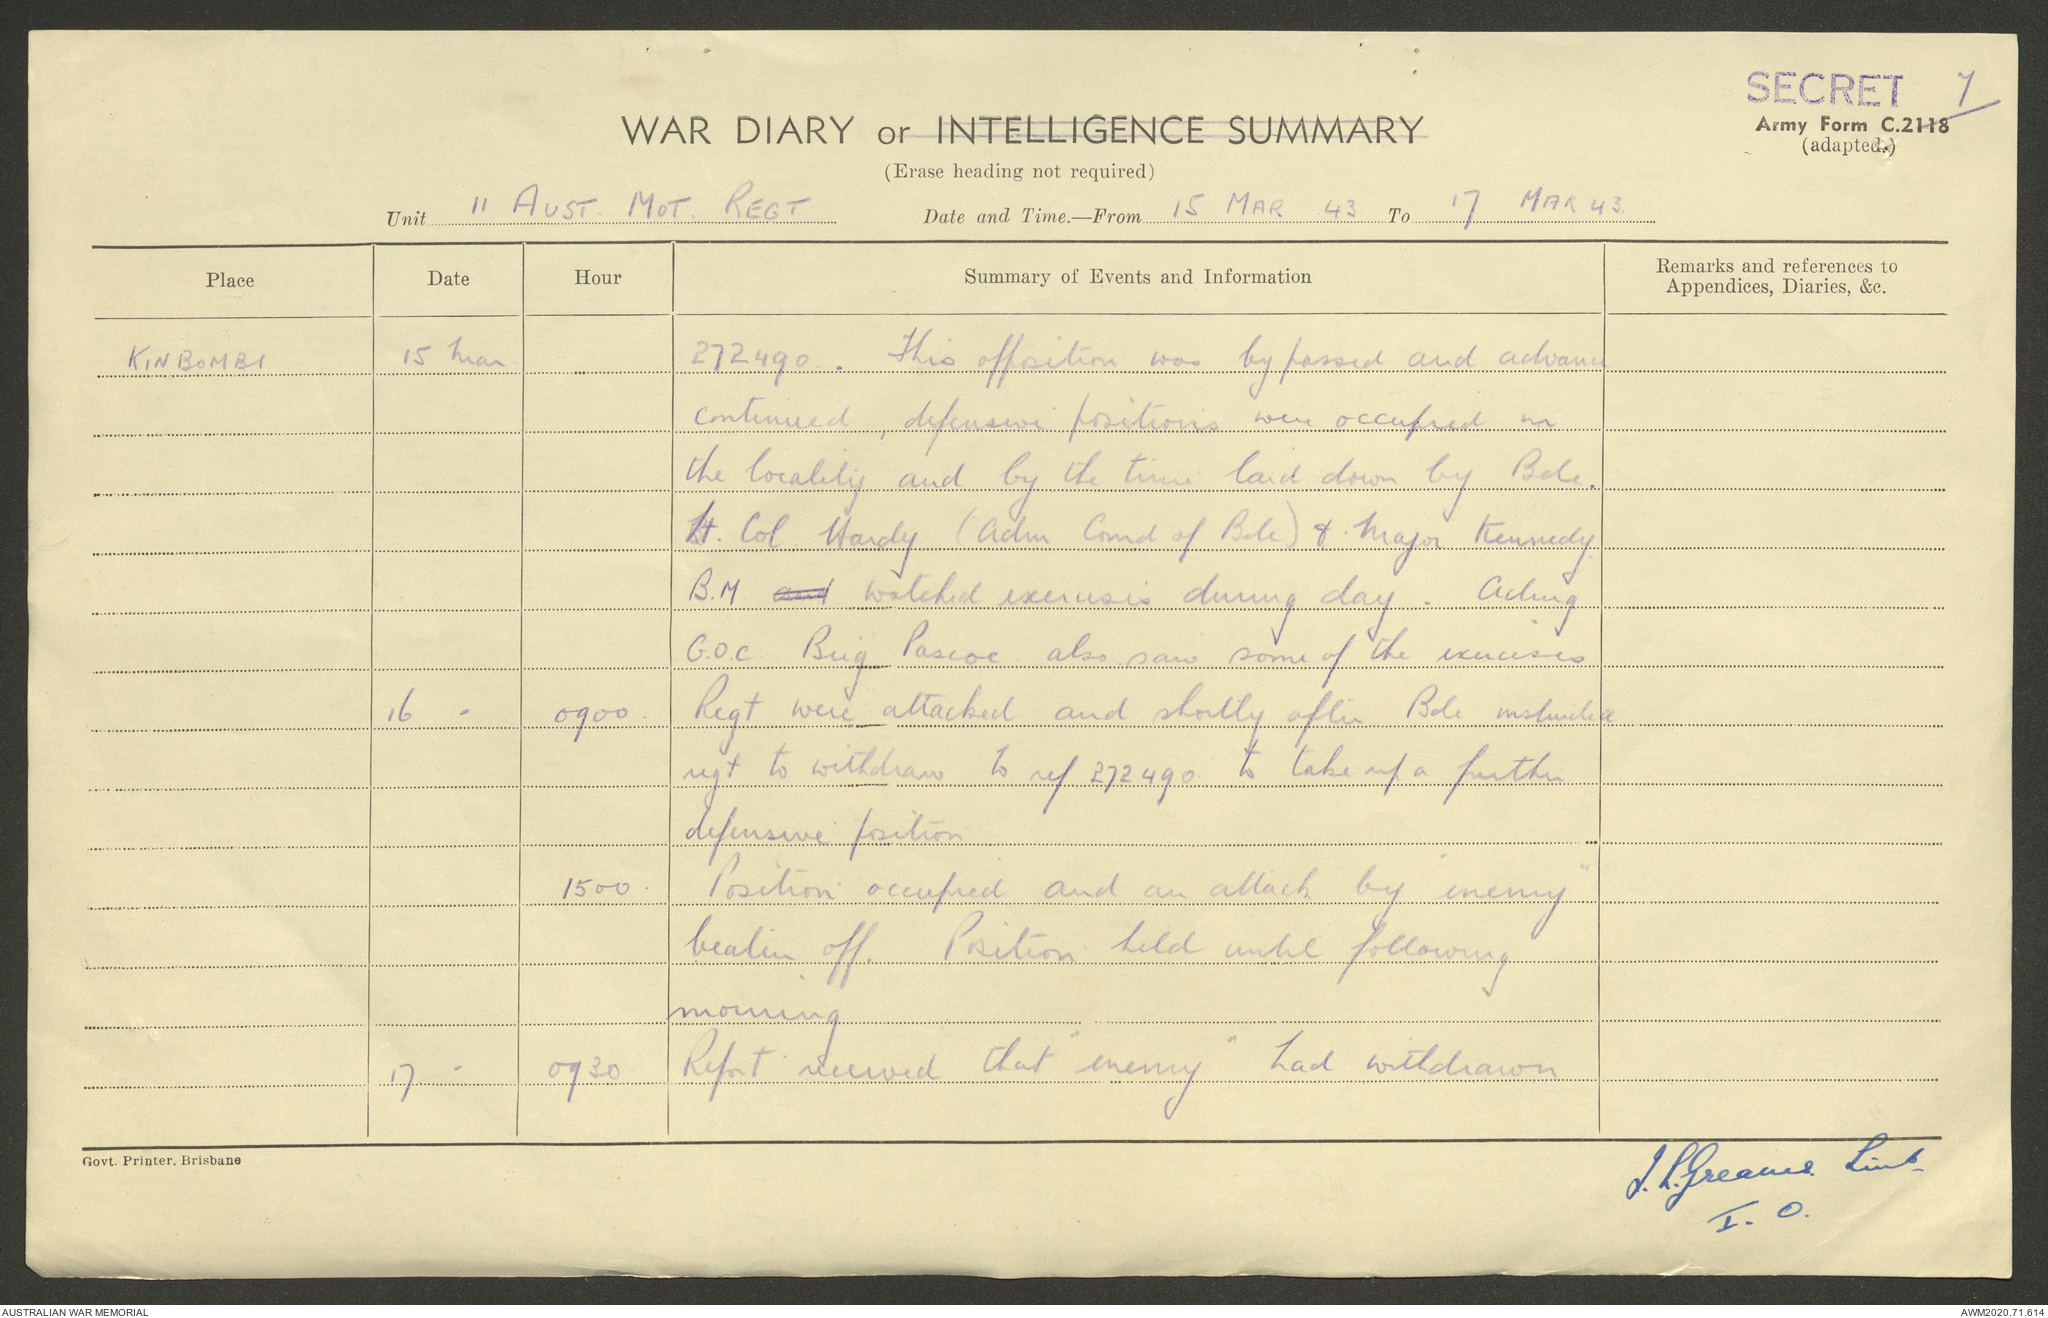 SECRET 7
WAR DIARY or INTELLIGENCE SUMMARY
Army Form C.2118
(adapted.)
(Erase heading not required)
Unit 11 AUST. MOT. REGT Date and Time.—From 15 MAR 43 To 17 MAR 43.
Place Date Hour Summary of Events and Information Remarks and references to
Appendices, Diaries, &c.
KINBOMBI 15 Mar 272490. This opposition was bypassed and advance
continued, defensive positions were occupied in
the locality and by the time laid down by Bde.
Lt. Col Hardy (Adm Comd of Bde) & Major Kennedy
B.M and watched exercises during day. Acting
G.O.C. Brig Pascoe also saw some of the exercises
16 " 0900. Regt were attacked and shortly after Bde instructed
regt to withdraw to ref 272490 to take up a further
defensive position
1500. Position occupied and an attack by "enemy"
beaten off. Position held until following
morning
17 " 0930 Report received that "enemy" had withdrawn
Govt. Printer, Brisbane
J. L. Greaves. Lieut.
I. O.
AUSTRALIAN WAR MEMORIAL AWM2020.71.614